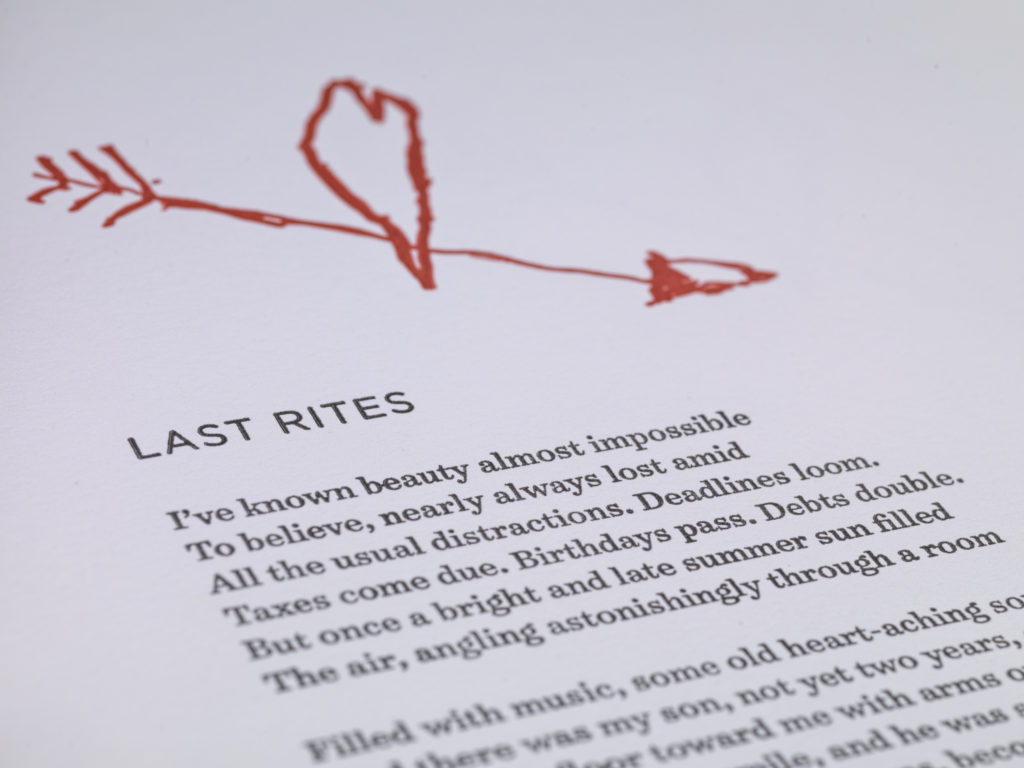 LAST RITES
I've known beauty almost impossible
To believe, nearly always lost amid
All the usual distractions. Deadlines loom.
Taxes come due. Birthdays pass. Debts double.
But once a bright and late summer sun filled
The air, angling astonishingly through a room
Filled with music, some old heart-aching
there was my son, not yet two years,
toward me with arms
and he was